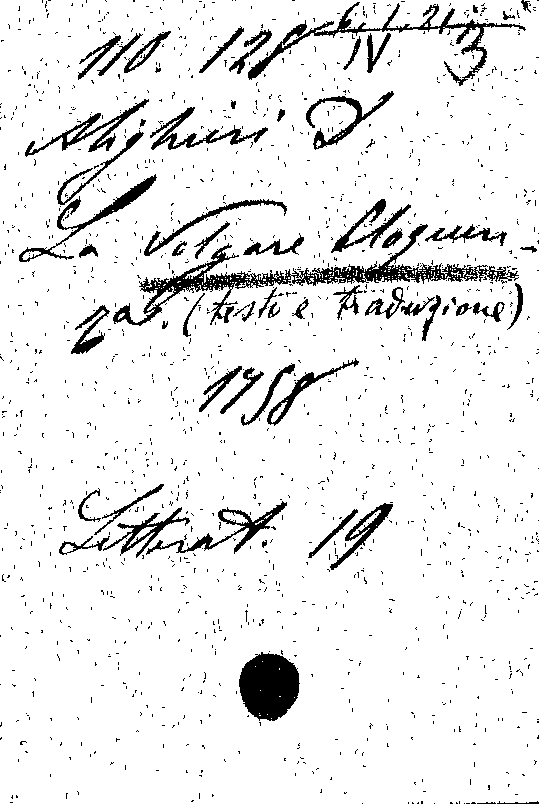 6. 1. 21.
110. 128 IV 3
Alighieri D
La Volgare Eloquen-
za. (testo e traduzione)
1758
Letterat. 19